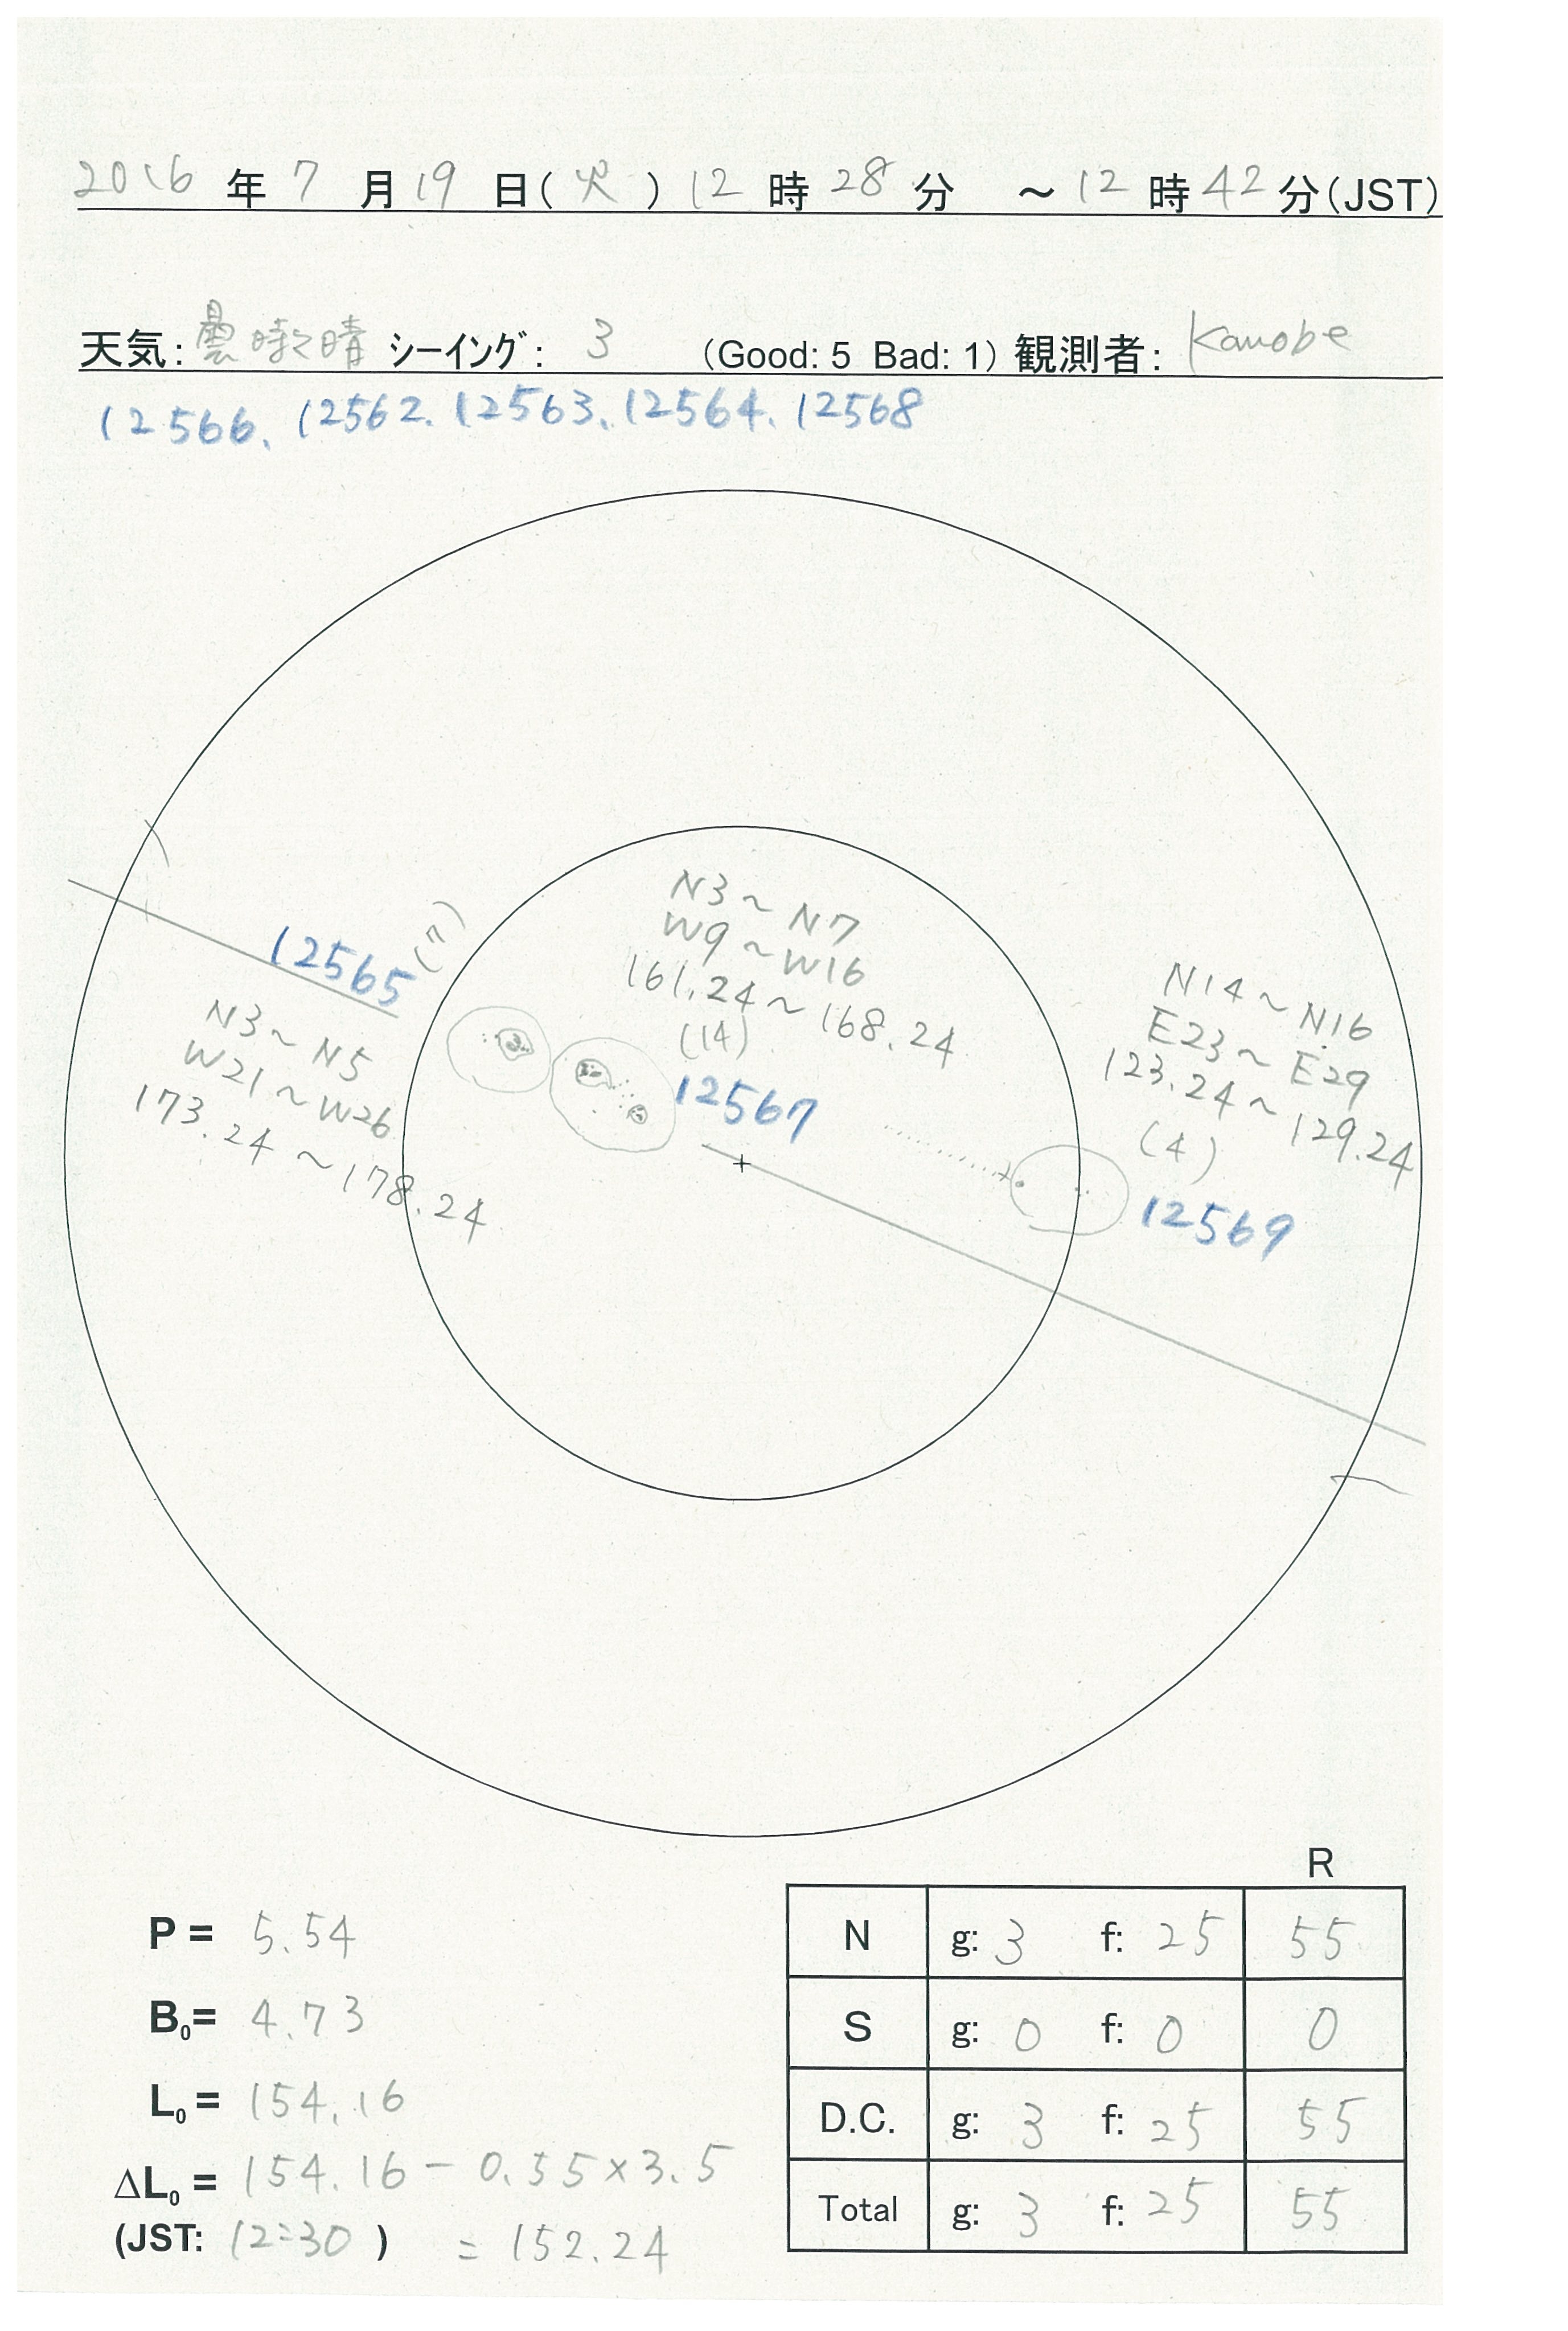 2016 年 7 月 19 日(火) 12 時 28 分 ～ 12 時 42 分(JST)
天気: 曇時々晴 シーイング: 3 (Good: 5 Bad: 1) 観測者: Kamobe
12566, 12562, 12563, 12564, 12568
12565 (7)
N3～N5
W21～W26
173.24～178.24
N3～N7
W9～W16
161.24～168.24
(14)
12567
N14～N16
E23～E29
123.24～129.24
(4)
12569
R
N g: 3 f: 25 55
S g: 0 f: 0 0
D.C. g: 3 f: 25 55
Total g: 3 f: 25 55
P = 5.54
B₀= 4.73
L₀= 154.16
ΔL₀= 154.16 - 0.55×3.5
(JST: 12:30) = 152.24